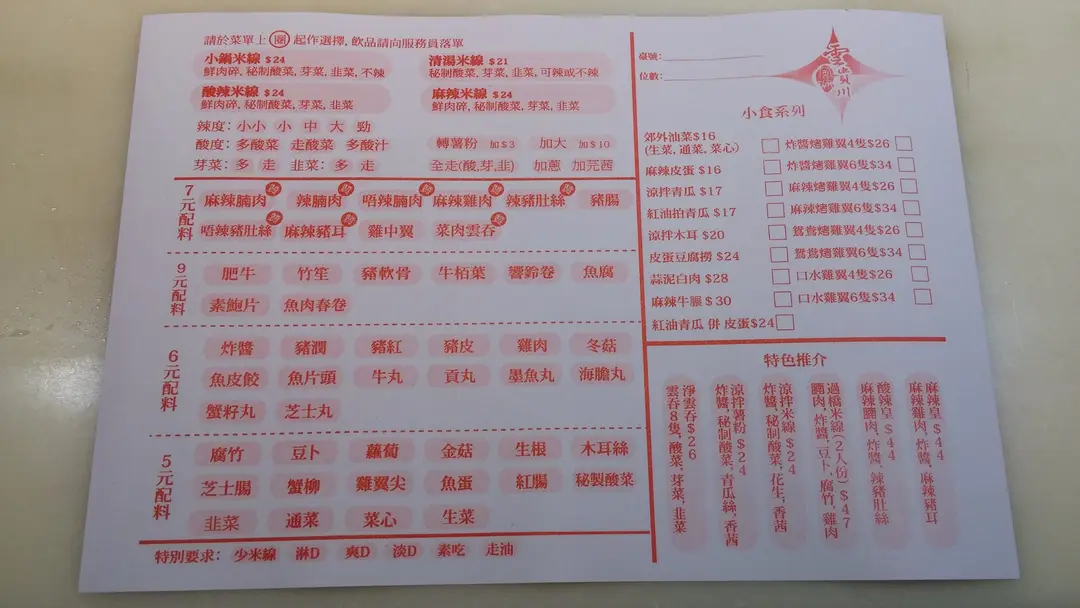 請於菜單上 圈 起作選擇, 飲品請向服務員落單
小鍋米線 $24
鮮肉碎, 秘制酸菜, 芽菜, 韭菜, 不辣
清湯米線 $21
秘制酸菜, 芽菜, 韭菜, 可辣或不辣
酸辣米線 $24
鮮肉碎, 秘制酸菜, 芽菜, 韭菜
麻辣米線 $24
鮮肉碎, 秘制酸菜, 芽菜, 韭菜
辣度: 小小 小 中 大 勁
酸度: 多酸菜 走酸菜 多酸汁
轉薯粉 加$3 加大 加$10
芽菜: 多 走 韭菜: 多 走
全走(酸,芽,韭) 加蔥 加芫茜
7元配料
麻辣腩肉 辣腩肉 唔辣腩肉 麻辣雞肉 辣豬肚絲 豬腸
唔辣豬肚絲 麻辣豬耳 雞中翼 菜肉雲吞
9元配料
肥牛 竹笙 豬軟骨 牛栢葉 響鈴卷 魚腐
素鮑片 魚肉春卷
6元配料
炸醬 豬潤 豬紅 豬皮 雞肉 冬菇
魚皮餃 魚片頭 牛丸 貢丸 墨魚丸 海膽丸
蟹籽丸 芝士丸
5元配料
腐竹 豆卜 蘿蔔 金菇 生根 木耳絲
芝士腸 蟹柳 雞翼尖 魚蛋 紅腸 秘製酸菜
韭菜 通菜 菜心 生菜
特別要求: 少米線 淋D 爽D 淡D 素吃 走油
臺號:
位數:
雲貴川
小食系列
郊外油菜$16
(生菜, 通菜, 菜心)
麻辣皮蛋 $16
涼拌青瓜 $17
紅油拍青瓜 $17
涼拌木耳 $20
皮蛋豆腐撈 $24
蒜泥白肉 $28
麻辣牛𦟌 $30
紅油青瓜 併 皮蛋$24
炸醬烤雞翼4隻$26
炸醬烤雞翼6隻$34
麻辣烤雞翼4隻$26
麻辣烤雞翼6隻$34
鴛鴦烤雞翼4隻$26
鴛鴦烤雞翼6隻$34
口水雞翼4隻$26
口水雞翼6隻$34
特色推介
麻辣皇 $44
麻辣雞肉, 炸醬, 麻辣豬耳
酸辣皇 $44
麻辣腩肉, 炸醬, 辣豬肚絲
過橋米線(2人份) $47
腩肉, 炸醬, 豆卜, 腐竹, 雞肉
涼拌米線 $24
炸醬, 秘制酸菜, 花生, 香茜
涼拌薯粉 $24
炸醬, 秘制酸菜, 青瓜絲, 香茜
淨雲吞 $26
雲吞8隻, 酸菜, 芽菜, 韭菜